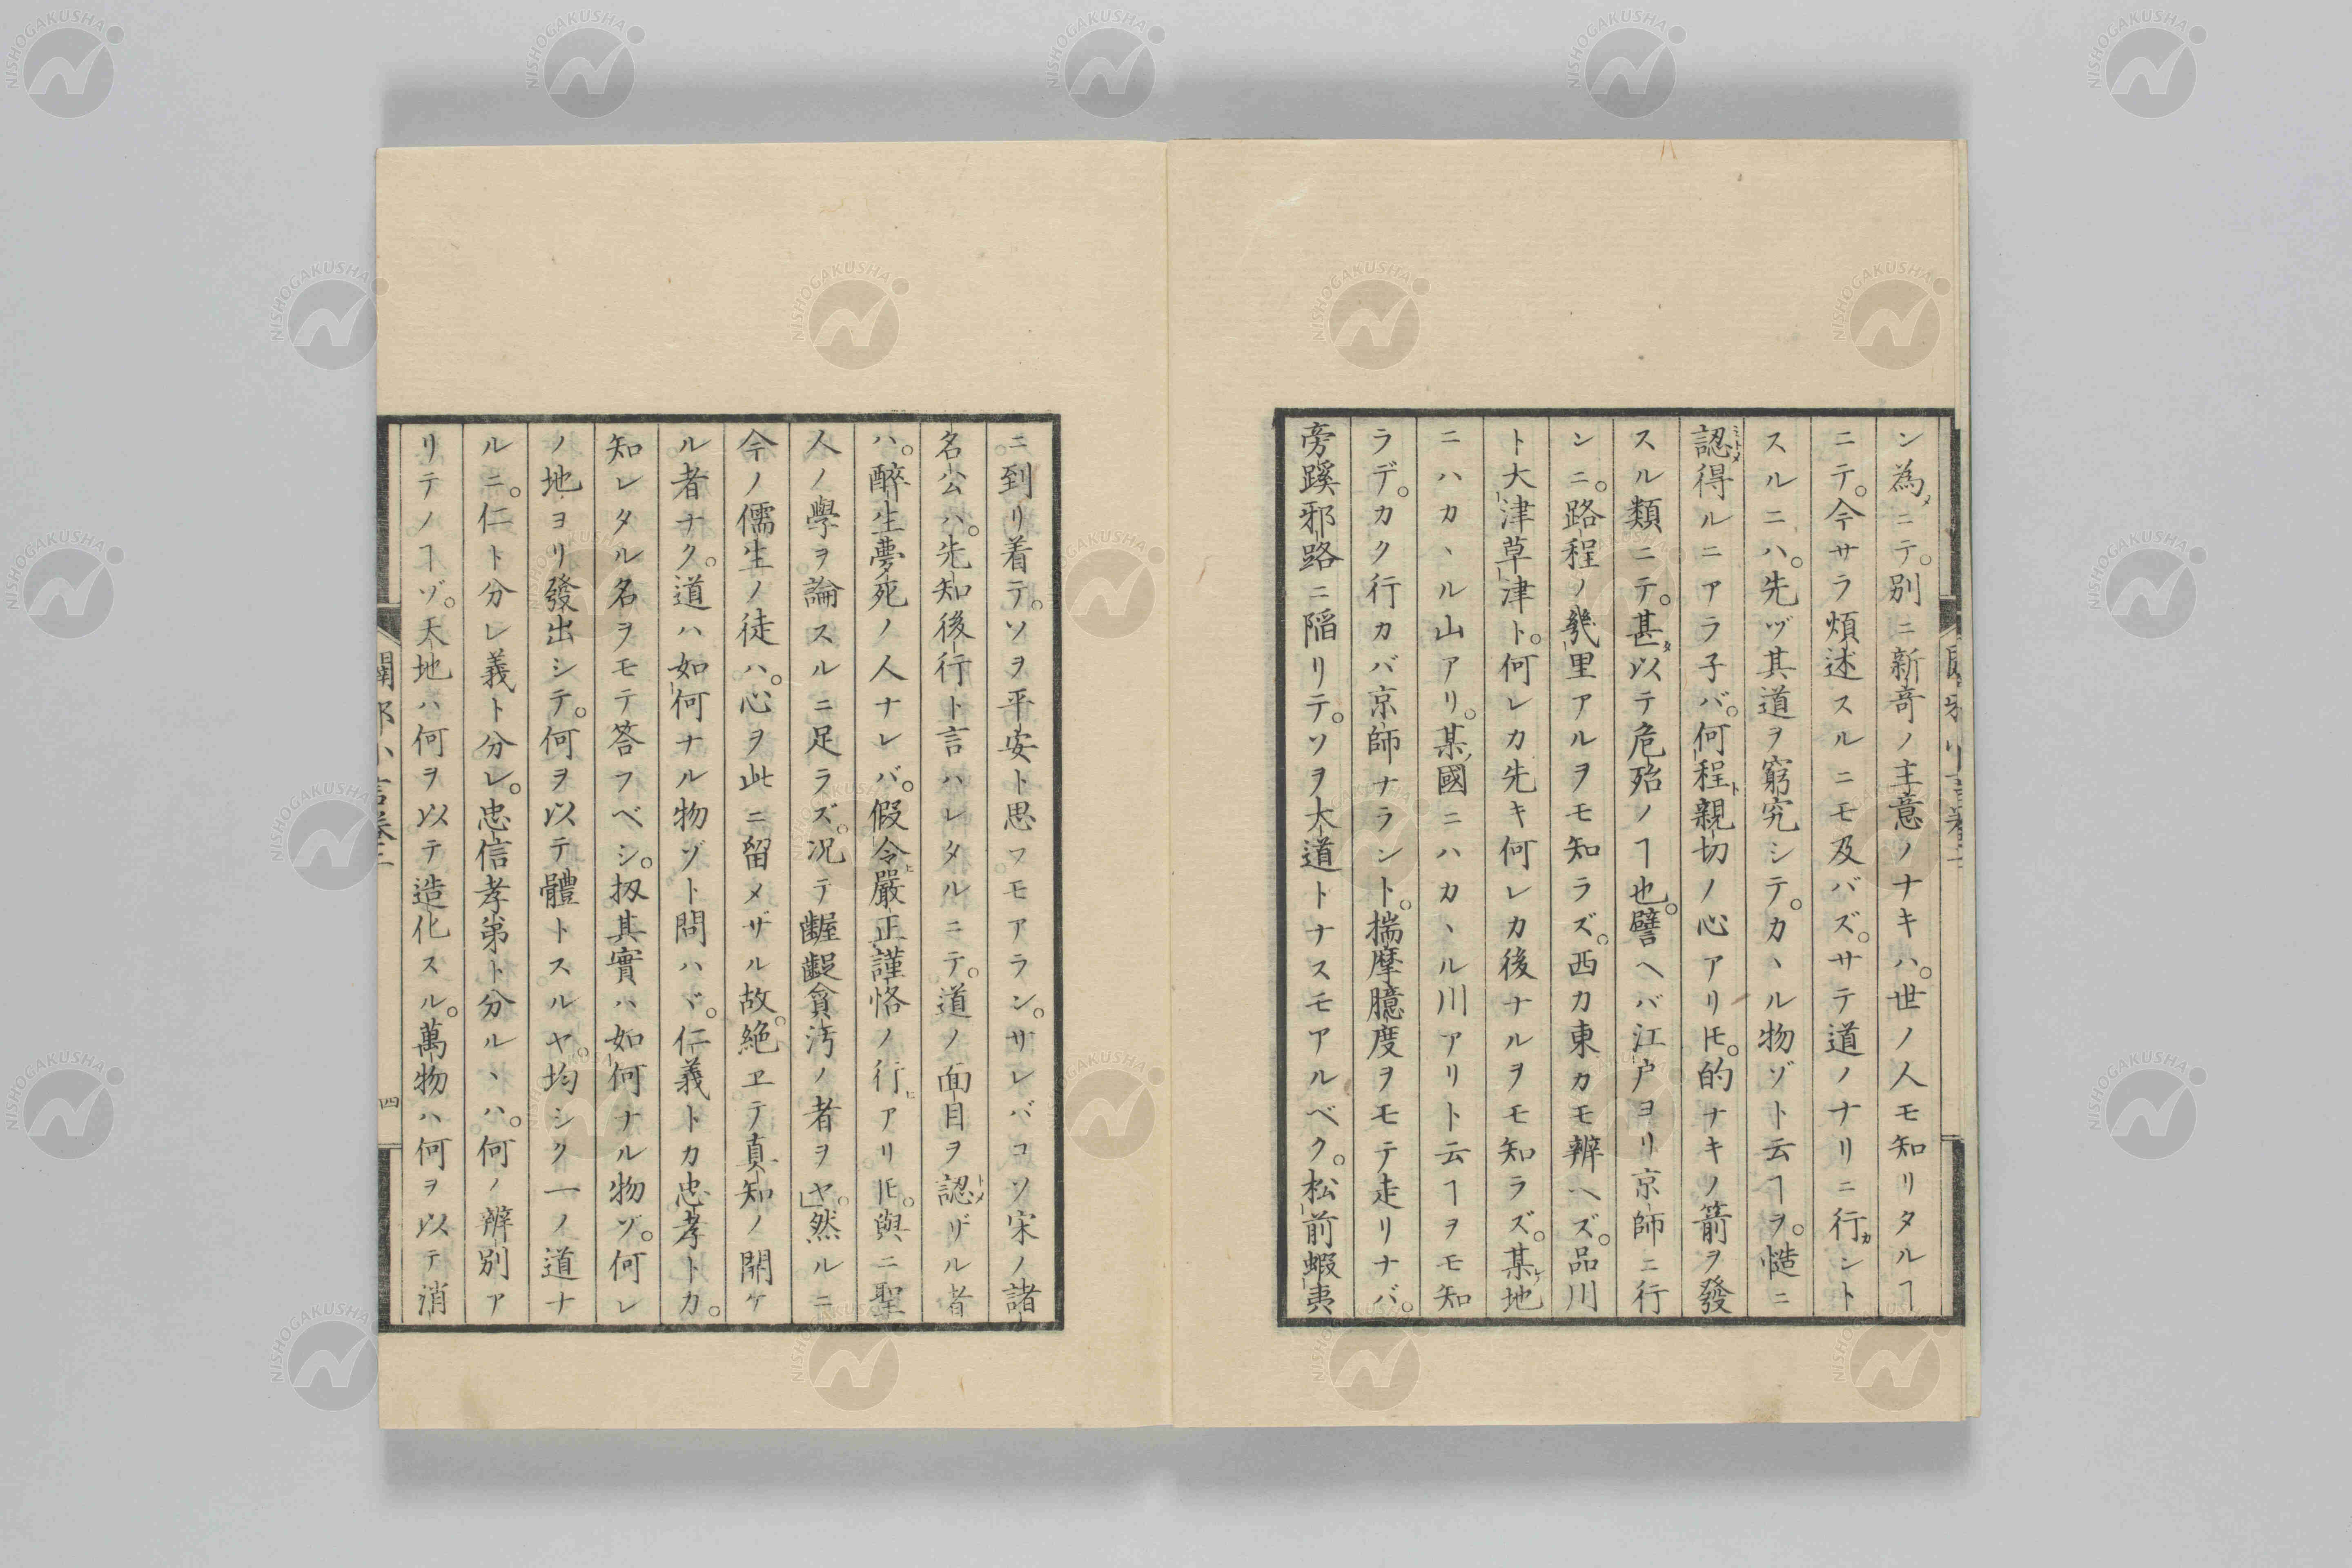 ン為ニテ。別ニ新奇ノ主意ノナキハ。世ノ人モ知リタルヿ
ニテ。今サラ煩述スルニモ及バズ。サテ道ノナリニ行ント
スルニハ。先ヅ其道ヲ窮究シテ。カヽル物ゾト云ヿヲ。慥ニ
認得ルニアラ子バ。何程親切ノ心アリ𪜈。的ナキノ箭ヲ發
スル類ニテ。甚以テ危殆ノヿ也。譬ヘバ江戸ヨリ京師ニ行
ンニ。路程ノ幾里アルヲモ知ラズ。西カ東カモ辨ヘズ。品川
ト大津草津ト。何レカ先キ何レカ後ナルヲモ知ラズ。某地
ニハカヽル山アリ。某國ニハカヽル川アリト云ヿヲモ知
ラデ。カク行カバ京師ナラント。揣摩臆度ヲモテ走リナバ。
旁蹊邪路ニ陥リテ。ソヲ大道トナスモアルベク。松前蝦夷
ニ到リ着テ。ソヲ平安ト思フモアラン。サレバコソ宋ノ諸
名公ハ。先知後行ト言ハレタルニテ。道ノ面目ヲ認ザル者
ハ。醉生夢死ノ人ナレバ。假令嚴正謹恪ノ行アリ𪜈。與ニ聖
人ノ學ヲ論スルニ足ラズ。况テ齷齪貪汚ノ者ヲヤ。然ルニ
今ノ儒生ノ徒ハ。心ヲ此ニ留メザル故。絶ヱテ真知ノ開ケ
ル者ナク。道ハ如何ナル物ゾト問ハヾ。仁義トカ忠孝トカ。
知レタル名ヲモテ答フベシ。扨其實ハ如何ナル物ゾ。何レ
ノ地ヨリ發出シテ。何ヲ以テ體トスルヤ。均シク一ノ道ナ
ルニ。仁ト分レ義ト分レ。忠信孝弟ト分ルヽハ。何ノ辨別ア
リテノヿゾ。天地ハ何ヲ以テ造化スル。萬物ハ何ヲ以テ消
闢邪小言巻二
四
NISHOGAKUSHA